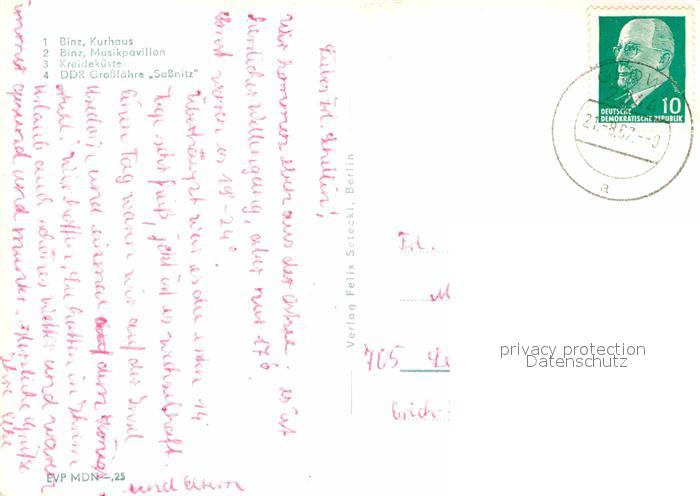 1 Binz, Kurhaus
2 Binz, Musikpavillon
3 Kreideküste
4 DDR Großfähre „Saßnitz"
Liebes Frl.
Wir kommen eben aus der Ostsee: es ist
herrlicher Wellengang, aber nur 17°.
Sonst waren es 19-24°.
Überhaupt war es die ersten 14
Tage sehr heiß, jetzt ist es wechselhaft.
Einen Tag waren wir auf der Insel
Usedom und einmal auf dem Königs-
stuhl. Wir hoffen, Sie hatten in Ihrem
Urlaub auch schönes Wetter und waren
immer gesund und munter. Herzliche Grüße
Ihre
und Eltern
EVP MDN -,25
Verlag Felix Setecki, Berlin
DEUTSCHE
DEMOKRATISCHE REPUBLIK
10
21.-8.67.--9
a
Frl.
M
705 Le
Erich-
privacy protection
Datenschutz